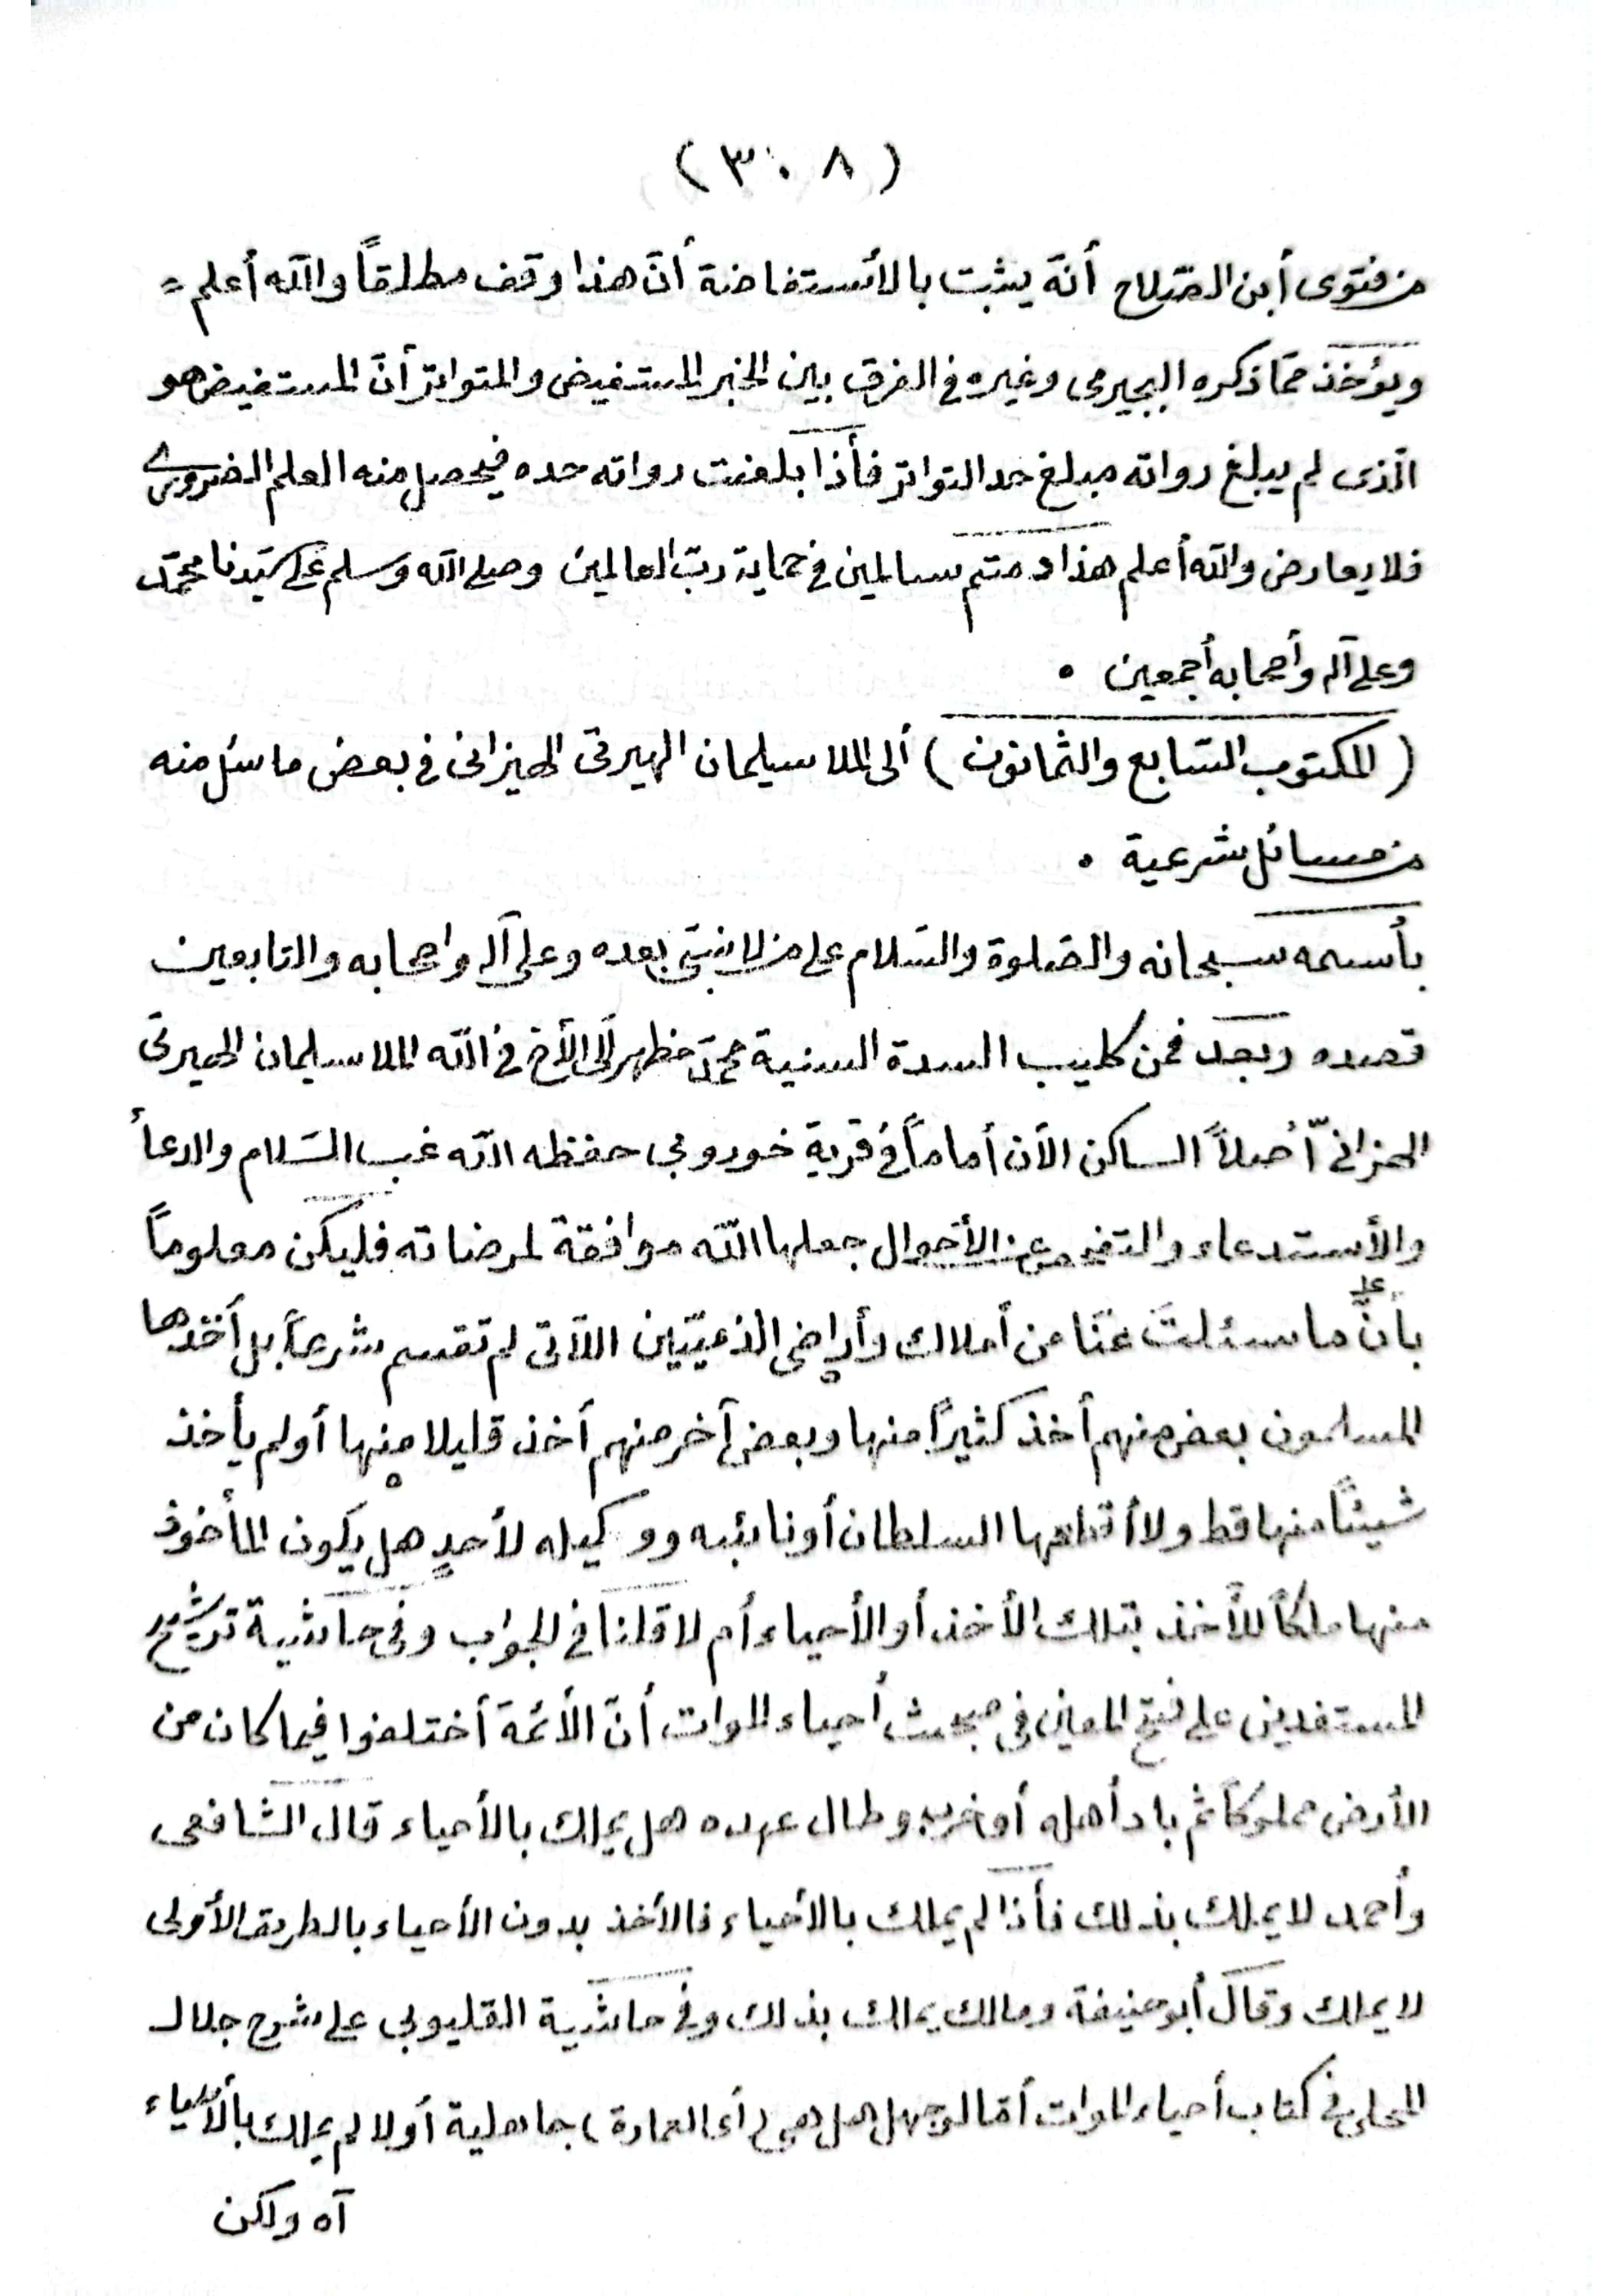 (٣٠٨)
من فتوى أبن الصّلاح أنّه يثبت بالأستفاضة أنّ هذا وقف مطلقاً والله أعلم =
ويؤخذ ممّا ذكره البجيرمى وغيره فى الفرق بين الخبر المستفيض والمتواتر أنّ المستفيض هو
الّذى لم يبلغ رواته مبلغ حد التواتر فأذا بلغت رواته حده فيحصل منه العلم الضرورى
فلا يعارض والله أعلم هذا ودمتم سالمين فى حماية ربّ العالمين وصلى الله وسلم على سيّدنا محمّد
وعلى آله وأصحابه أجمعين ٠
(المكتوب السّابع والثمانون) ألى الملا سيلمان الهيرتى الهيزانى فى بعض ما سئل منه
من مسائل شرعية ٠
بأسمه سبحانه والصّلوة والسّلام على من لا نبىّ بعده وعلى آله واصحابه والتابعين
قصده وبعد فمن كليب السدة السنية محمّد مظهر ألى الأخ فى الله الملا سليمان الهيرتى
الحزانىّ أصلاً الساكن الآن أماماً فى قرية حفظه الله غب السّلام والدعأ
والأستدعاء والتفحص عن الأحوال جعلها الله موافقة لمرضاته فليكن معلوماً
بأنّ ما سئلتَ عنّا من أملاك وأراضى الذميّين اللّآتى لم تقسم شرعاً بل أخذها
المسلمون بعض منهم أخذ كثيراً منها وبعض آخر منهم أخذ قليلا منها أو لم يأخذ
شيئاً منها قط ولا أقطعها السلطان أو نائبه ووكيله لأحدٍ هل يكون المأخوذ
منها ملكاً للأخذ بتلك الأخذ أو الأحياء أم لا قلنا فى الجواب وفى حاشية ترشيح
المستفدين على فتح المعين فى مبحث أحياء الموات أنّ الأئمّة أختلفوا فيما كان من
الأرض مملوكاً ثم باد أهله أو خرب وطال عهده هل يملك بالأحياء قال الشافعى
وأحمد لا يملك بذلك فأذا لم يملك بالأحياء فالأخذ بدون الأحياء بالطريق الأولى
لا يملك وقال أبو حنيفة ومالك يملك بذلك وفى حاشية القليوبى على شرح جلال
المحلى فى كتاب أحياء الموات أمّا لو جهل هل هى (أى العمارة) جاهلية أو لا لم يملك بالأحياء
آه ولكن